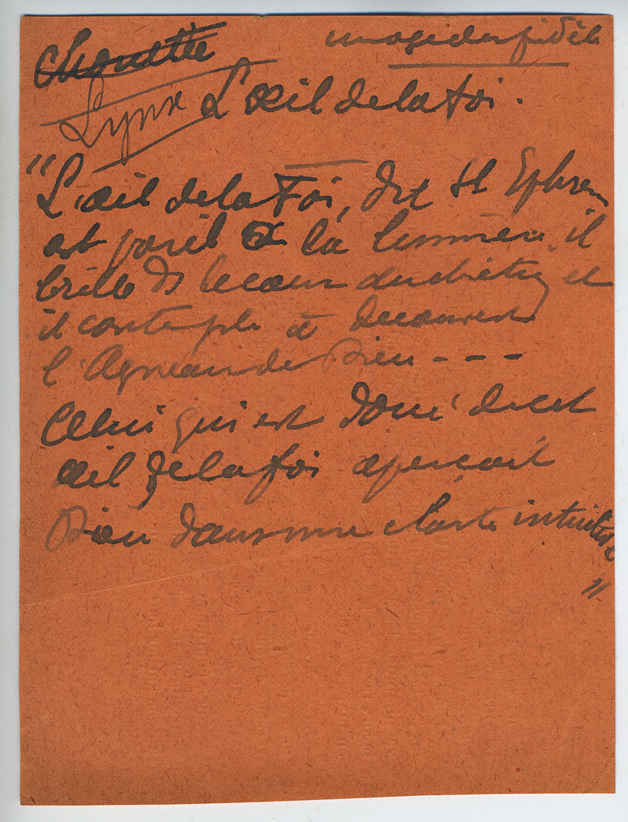 Chouette image du fidèle
Lynx L'œil de la foi.
"L'œil de la Foi, dit St Ephrem
est pareil à la lumière, il
brille ds le cœur du chrétien et
il contemple à découvert
l'Agneau de Dieu - - -
Celui qui est doué de cet
œil de la foi aperçoit
Dieu dans une clarté intuitive
"